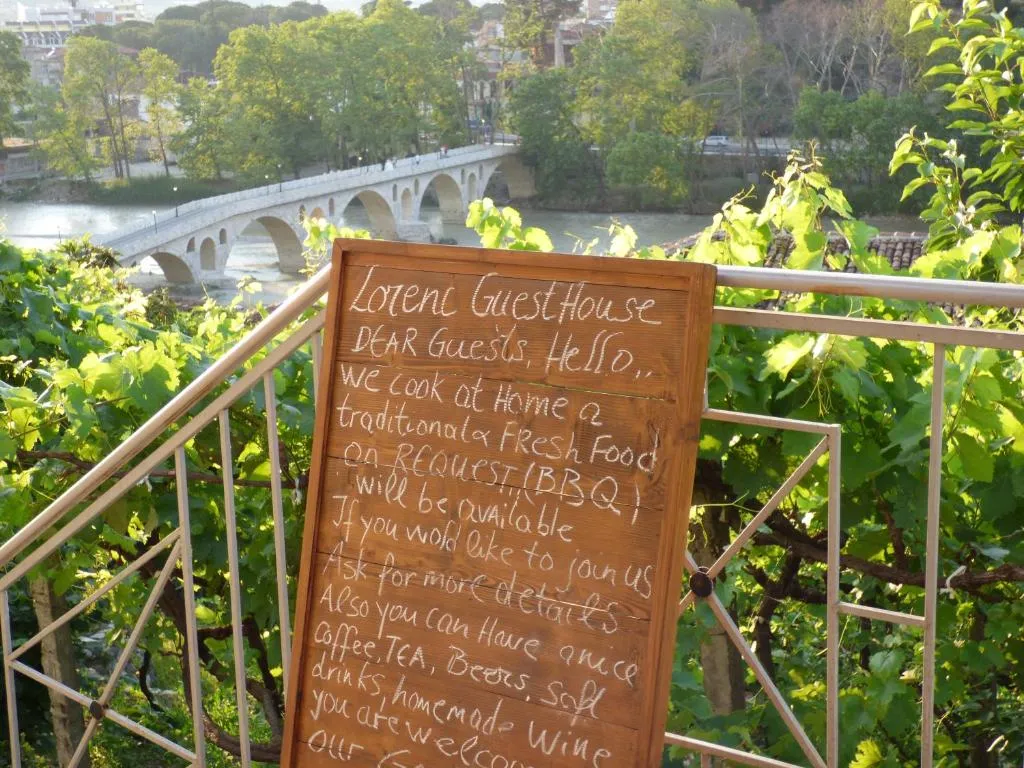 Lorenc GuestHouse
DEAR Guests, Hello,,
we cook at Home a
traditional & FResh Food
on REQUEST, (BBQ)
will be available
If you wold like to join us
Ask for more details
Also you can Have a nice
coffee, TEA, Beers, Soft
drinks, homemade Wine
you are welcom
our